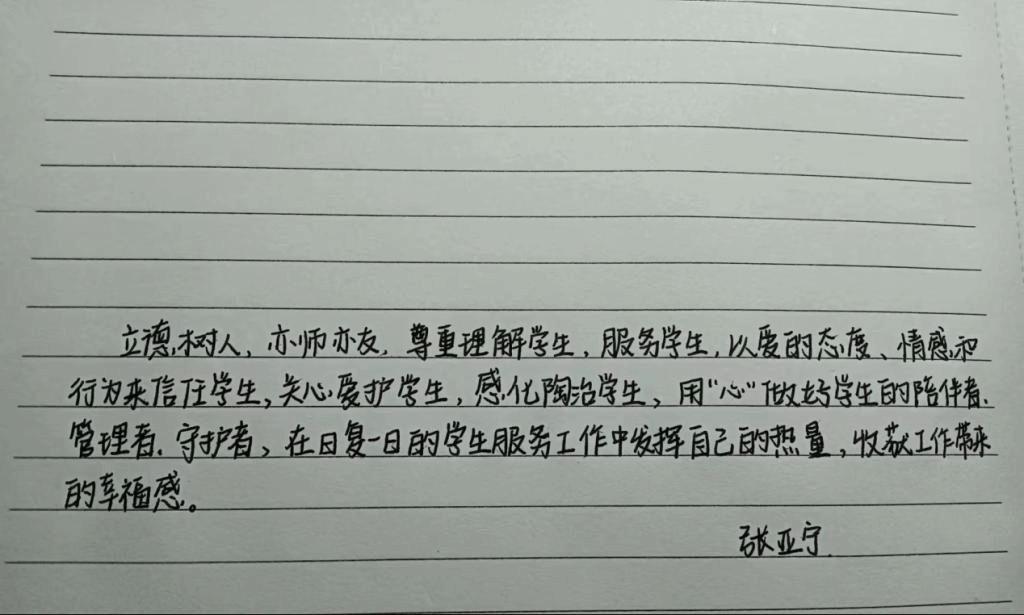 立德树人，亦师亦友，尊重理解学生，服务学生，以爱的态度、情感和
行为来信任学生，关心爱护学生，感化陶冶学生，用“心”做好学生的陪伴者、
管理者、守护者，在日复一日的学生服务工作中发挥自己的热量，收获工作带来
的幸福感。
张亚宁